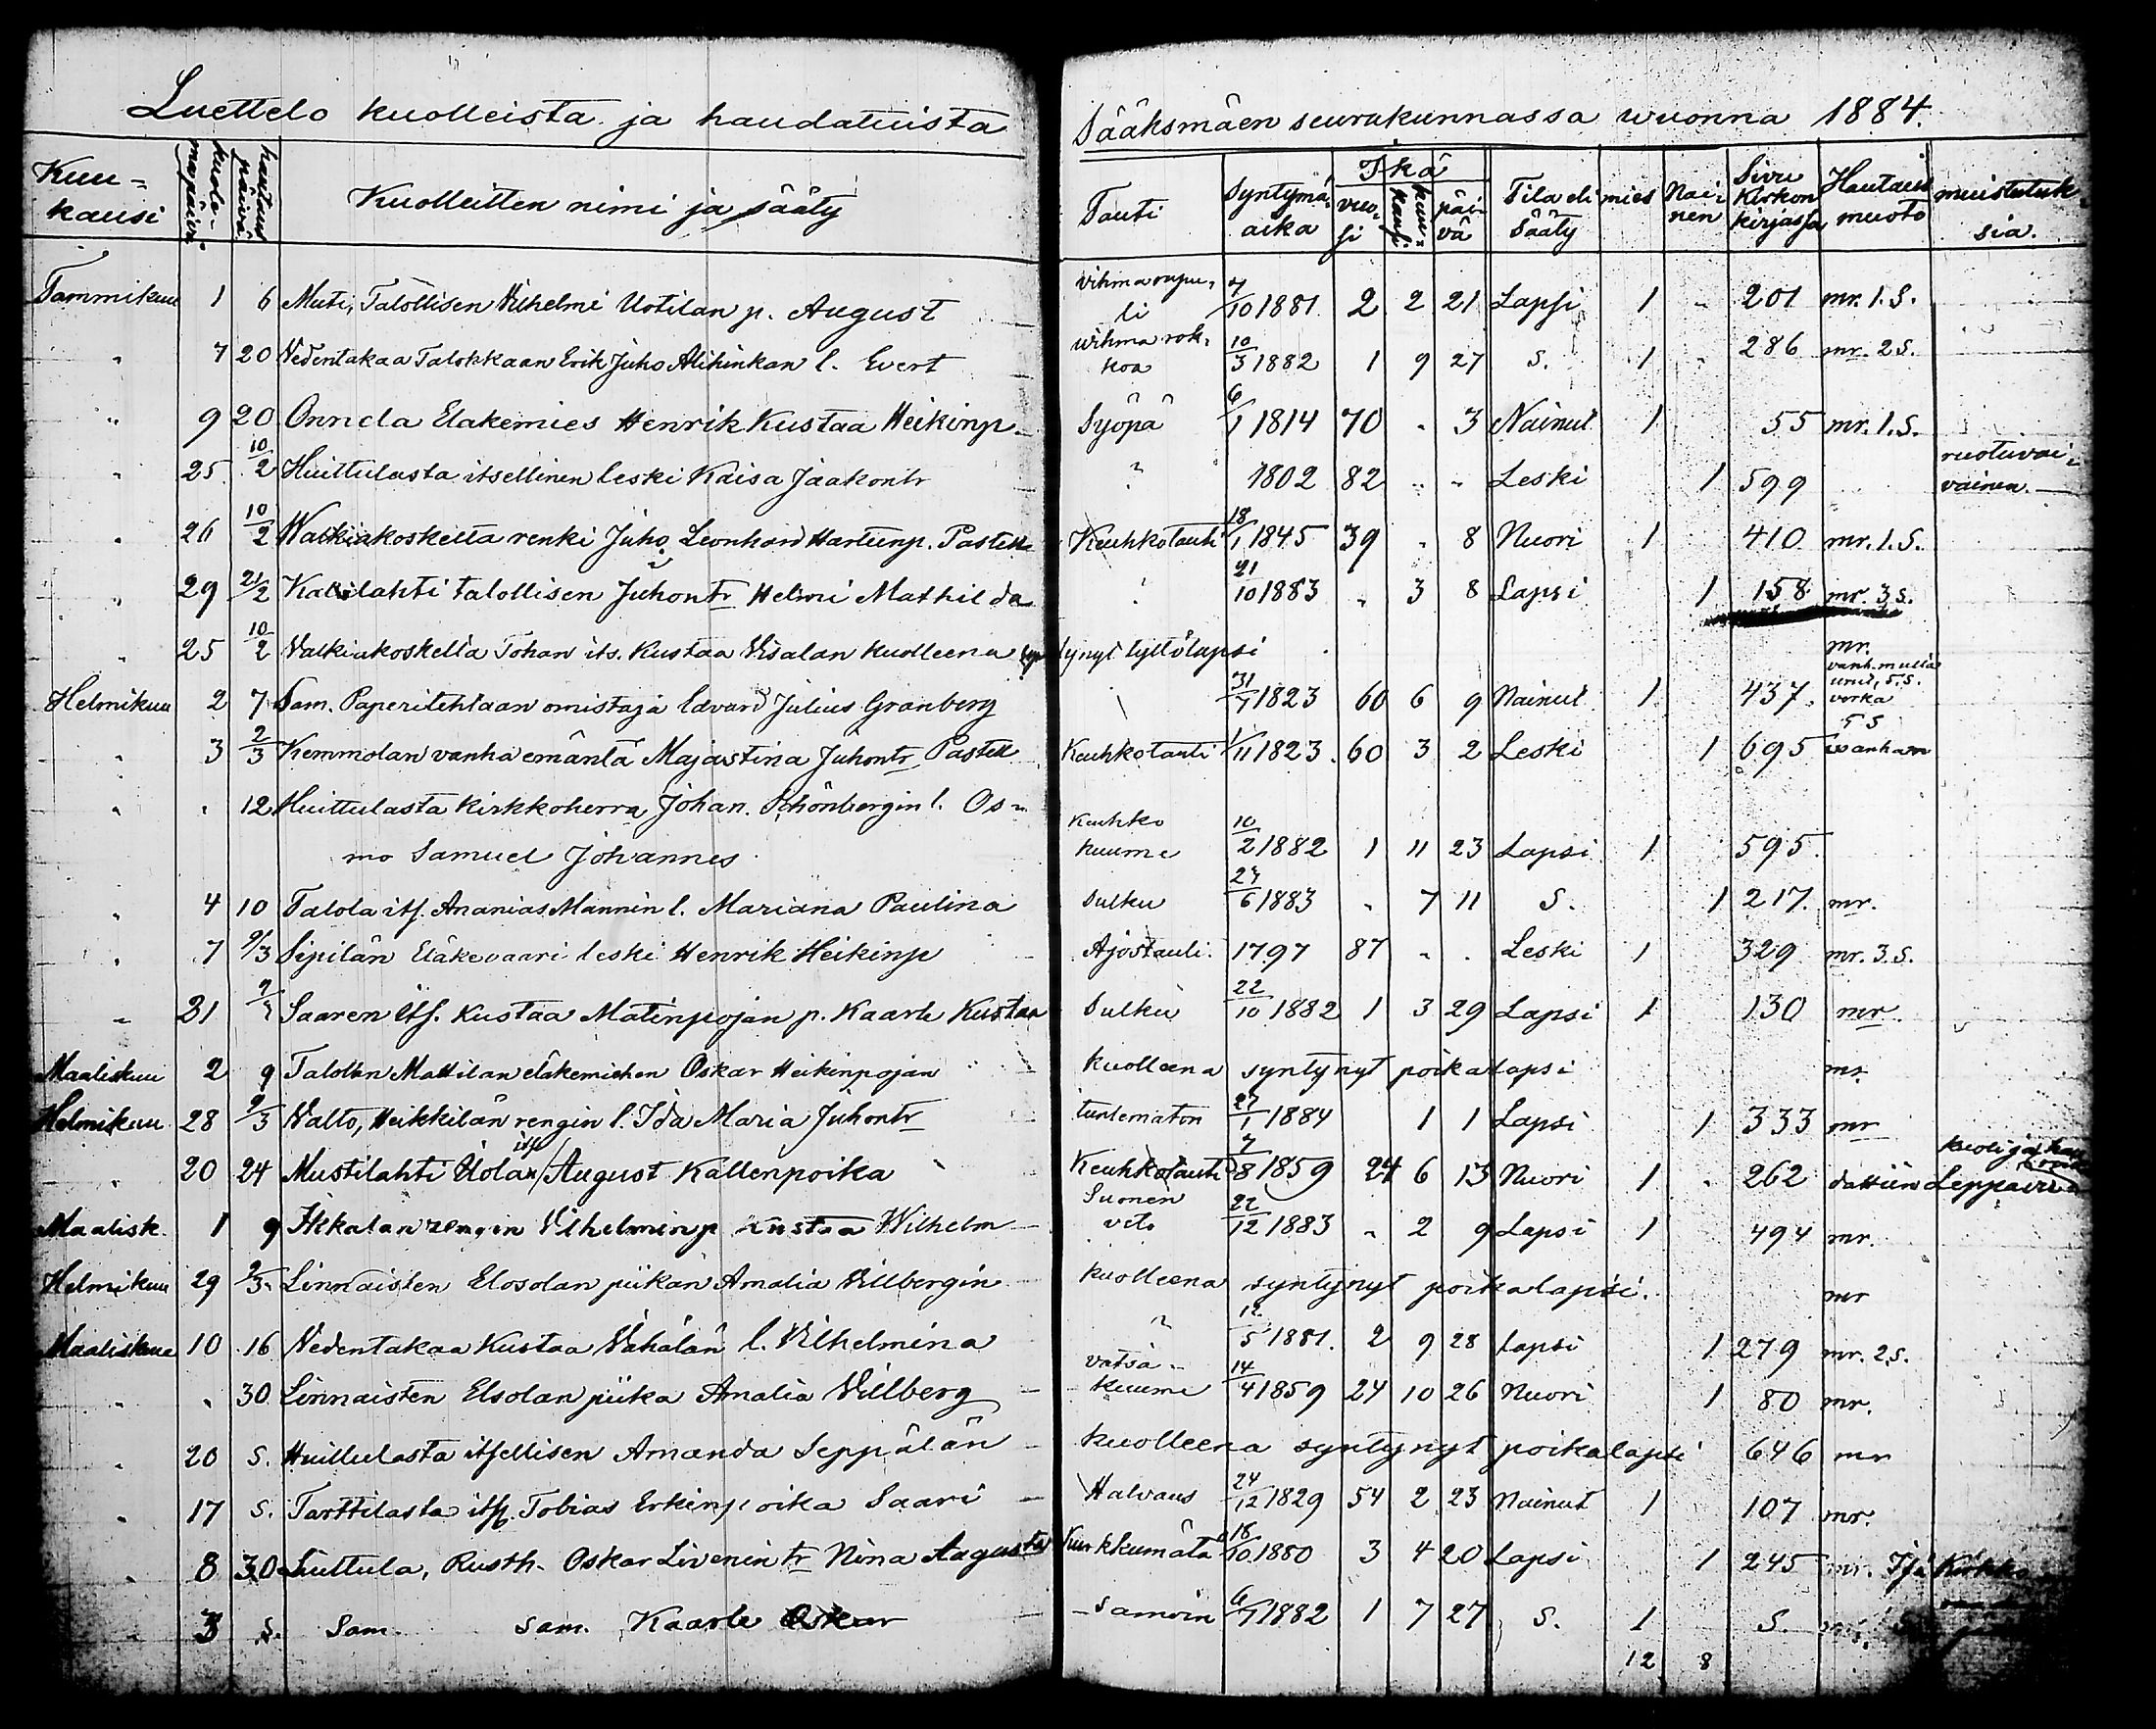 Luettelo kuolleista ja haudatuista Sääksmäen seurakunnassa wuonna 1884.
Kuu-kausi kuole-mapäivä hautaus päivä Kuolleitten nimi ja sääty Tauti Syntymä aika Ikä vuo-si kuu-kausi päi-vä Tila eli Sääty mies Nai-nen Sivu Kirkon kirjassa Hautaus muoto muistutuk-sia.
Tammikuu 1 6 Muti, Talollisen Vilhelmi Uotilan p. August vihmarupu-li 7/10 1881 2 2 21 Lapsi 1 201 mr. 1. S.
" 7 20 Vedentakaa Talokkaan Erik Juho Alihinkan l. Evert wihma rok-koa 10/3 1882 1 9 27 S. 1 286 mr. 2 S.
" 9 20 Onnela Elakemies Henrik Kustaa Heikinp. Syöpä 6/1 1814 70 " 3 Nainut 1 55 mr. 1. S.
" 25 10/2 Huittulasta itsellinen leski Kaisa Jaakontr ? 1802 82 " " Leski 1 599 ruotuvai-vainen.
" 26 10/2 Walkiakoskelta renki Juho Leonhard Hartunp. Pastell Keuhkotauti 18/1 1845 39 " 8 Nuori 1 410 mr. 1. S.
" 29 21/2 talollisen Juhontr Helmi Mathilda ? 21/10 1883 " 3 8 Lapsi 1 158 mr. 3 S.
" 25 10/2 Valkiakoskella Johan its. Kustaa Visalan kuolleena syntynyt tyttölapsi mr.
Helmikuu 2 7 Sam. Paperitehtaan omistaja Edvard Julius Granberg 31/7 1823 60 6 9 Nainut 1 437
" 3 2/3 Kemmolan vanha emäntä Majastina Juhontr Pastell Keuhkotauti 1/11 1823 60 3 2 Leski 1 695 wanhan
" " 12 Huittulasta kirkkoherra Johan. Schönbergin l. Os-
mo Samuel Johannes Keuhko kuume 10/2 1882 1 11 23 Lapsi 1 595
" 4 10 Talola its. Ananias Mannin l. Mariana Paulina Tulku 23/6 1883 " 7 11 S. 1 217. mr.
" 7 9/3 Sipilän Eläkevaari leski Henrik Heikinp Ajostauti. 1797 87 " " Leski 1 329 mr. 3. S.
" 21 Saaren its. Kustaa Matinpojan p. Kaarle Kustaa Tulku 22/10 1882 1 3 29 Lapsi 1 130 mr.
Maaliskuu 2 9 Mattilan eläkemiehen Oskar Heikinpojan kuolleena syntynyt poikalapsi mr.
Helmikuu 28 9/3 Valto, Heikkilän rengin l. Ida Maria Juhontr tuntematon 27/1 1884 1 1 Lapsi 1 333 mr
" 20 24 Mustilahti Uolan its August Kallenpoika Keuhkotauti 7/8 1859 24 6 13 Nuori 1 262 Leppävir
Maalisk. 1 9 rengin Vilhelminp Kustaa Wilhelm Suonen veto 22/12 1883 " 2 9 Lapsi 1 494 mr.
Helmikuu 29 9/3 Linnaisten Elosolan piikan Amalia Villbergin kuolleena syntynyt poikalapsi. mr
Maaliskuu 10 16 Vedentakaa Kustaa Vähälän l. Vilhelmina ? 12/5 1881. 2 9 28 Lapsi 1 279 mr. 2 S.
" " 30 Linnaisten Elsolan piika Amalia Villberg vatsa-kuume 14/4 1859 24 10 26 Nuori 1 80 mr.
" 20 S. Huittulasta itsellisen Amanda Seppälän kuolleena syntynyt poikalapsi 646 mr
" 17 S. Tarttilasta its. Tobias Erkinpoika Saari Halvaus 24/12 1829 54 2 23 Nainut 1 107 mr.
" 8 30 Liuttula, Rusth. Oskar Livenin tr Nina Augusta Kurkkumätä 18/10 1880 3 4 20 Lapsi 1 245 mr.
" 3 S. Sam. sam. Kaarle Oskar samoin 6/7 1882 1 7 27 S. 1 S.
12 8